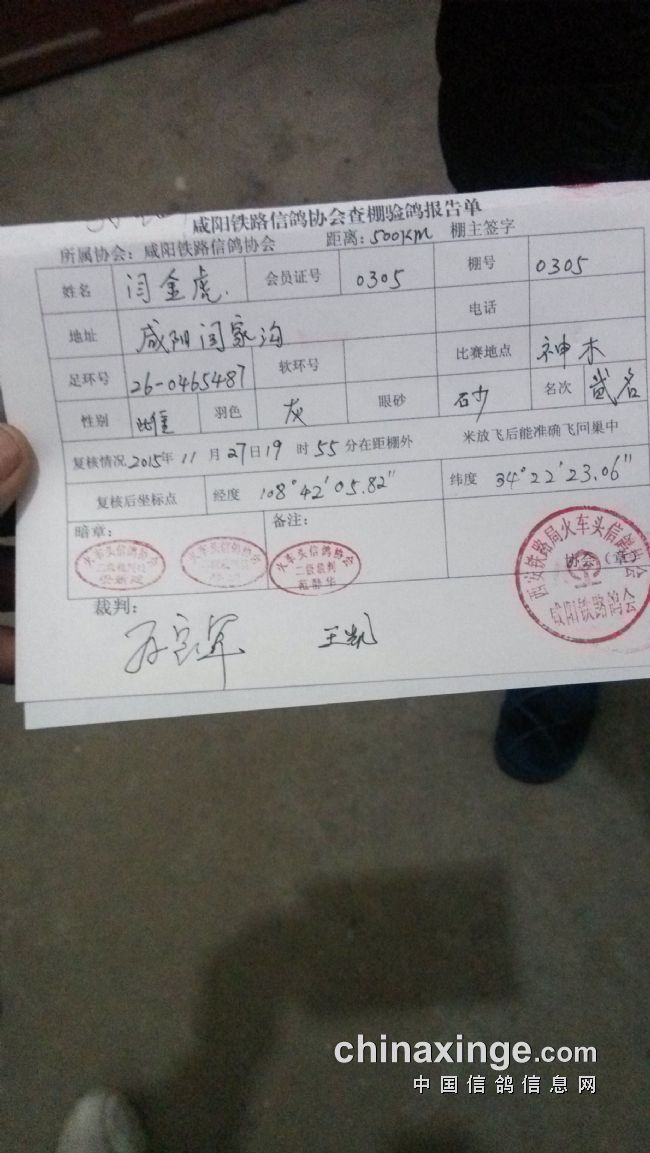 咸阳铁路信鸽协会查棚验鸽报告单
所属协会：咸阳铁路信鸽协会 距离：500KM 棚主签字
姓名 闫金虎 会员证号 0305 棚号 0305
地址 咸阳闫家沟 电话
足环号 26-0465487 软环号 比赛地点 神木
性别 雄 羽色 灰 眼砂 砂 名次 贰名
复核情况 2015年11月27日19时55分在距棚外 米放飞后能准确飞回巢中
复核后坐标点 经度 108°42′05.82″ 纬度 34°22′23.06″
暗章： 备注：
火车头信鸽协会 火车头信鸽协会 火车头信鸽协会
二级裁判 二级裁判
西安铁路局火车头信鸽协会
协会（章）
咸阳铁路鸽会
裁判：
王凯
chinaxinge.com
中国信鸽信息网